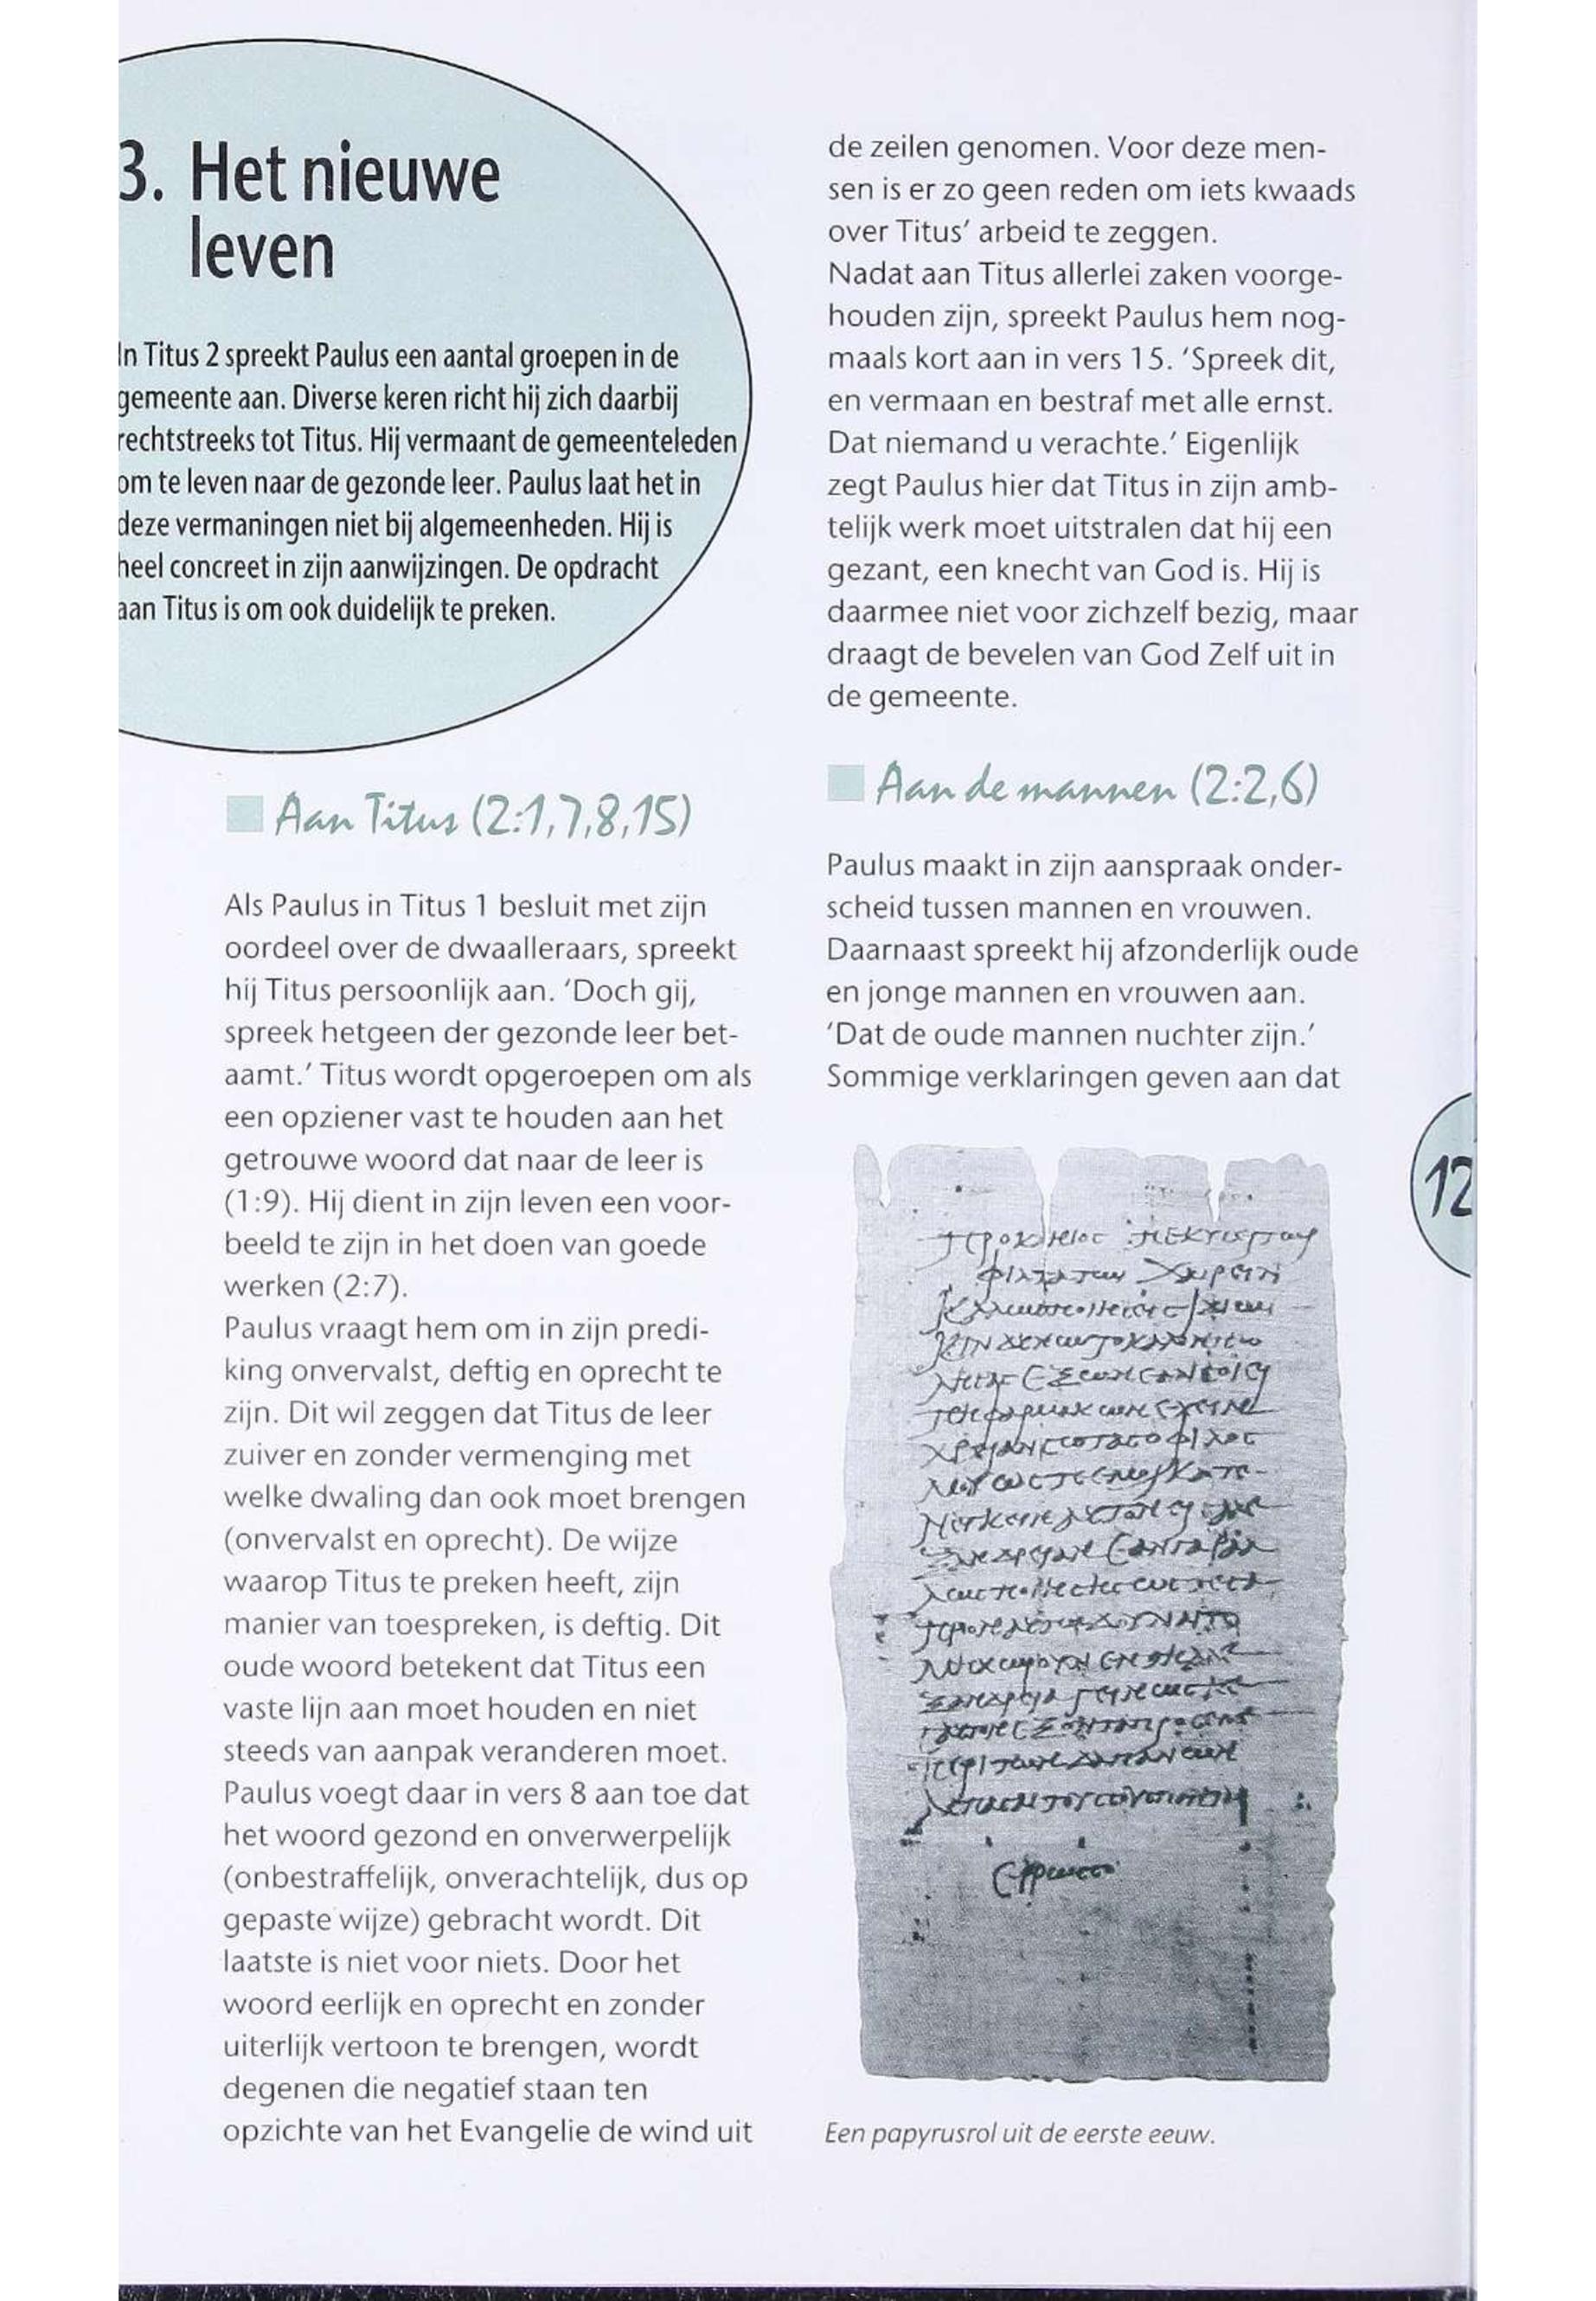 3. Het nieuwe
leven
In Titus 2 spreekt Paulus een aantal groepen in de
gemeente aan. Diverse keren richt hij zich daarbij
rechtstreeks tot Titus. Hij vermaant de gemeenteleden
om te leven naar de gezonde leer. Paulus laat het in
deze vermaningen niet bij algemeenheden. Hij is
heel concreet in zijn aanwijzingen. De opdracht
aan Titus is om ook duidelijk te preken.
Aan Titus (2:1,7,8,15)
Als Paulus in Titus 1 besluit met zijn
oordeel over de dwaalleraars, spreekt
hij Titus persoonlijk aan. ‘Doch gij,
spreek hetgeen der gezonde leer bet-
aamt.’ Titus wordt opgeroepen om als
een opziener vast te houden aan het
getrouwe woord dat naar de leer is
(1:9). Hij dient in zijn leven een voor-
beeld te zijn in het doen van goede
werken (2:7).
Paulus vraagt hem om in zijn predi-
king onvervalst, deftig en oprecht te
zijn. Dit wil zeggen dat Titus de leer
zuiver en zonder vermenging met
welke dwaling dan ook moet brengen
(onvervalst en oprecht). De wijze
waarop Titus te preken heeft, zijn
manier van toespreken, is deftig. Dit
oude woord betekent dat Titus een
vaste lijn aan moet houden en niet
steeds van aanpak veranderen moet.
Paulus voegt daar in vers 8 aan toe dat
het woord gezond en onverwerpelijk
(onbestraffelijk, onverachtelijk, dus op
gepaste wijze) gebracht wordt. Dit
laatste is niet voor niets. Door het
woord eerlijk en oprecht en zonder
uiterlijk vertoon te brengen, wordt
degenen die negatief staan ten
opzichte van het Evangelie de wind uit
de zeilen genomen. Voor deze men-
sen is er zo geen reden om iets kwaads
over Titus’ arbeid te zeggen.
Nadat aan Titus allerlei zaken voorge-
houden zijn, spreekt Paulus hem nog-
maals kort aan in vers 15. ‘Spreek dit,
en vermaan en bestraf met alle ernst.
Dat niemand u verachte.’ Eigenlijk
zegt Paulus hier dat Titus in zijn amb-
telijk werk moet uitstralen dat hij een
gezant, een knecht van God is. Hij is
daarmee niet voor zichzelf bezig, maar
draagt de bevelen van God Zelf uit in
de gemeente.
Aan de mannen (2:2,6)
Paulus maakt in zijn aanspraak onder-
scheid tussen mannen en vrouwen.
Daarnaast spreekt hij afzonderlijk oude
en jonge mannen en vrouwen aan.
‘Dat de oude mannen nuchter zijn.’
Sommige verklaringen geven aan dat
Een papyrusrol uit de eerste eeuw.
12